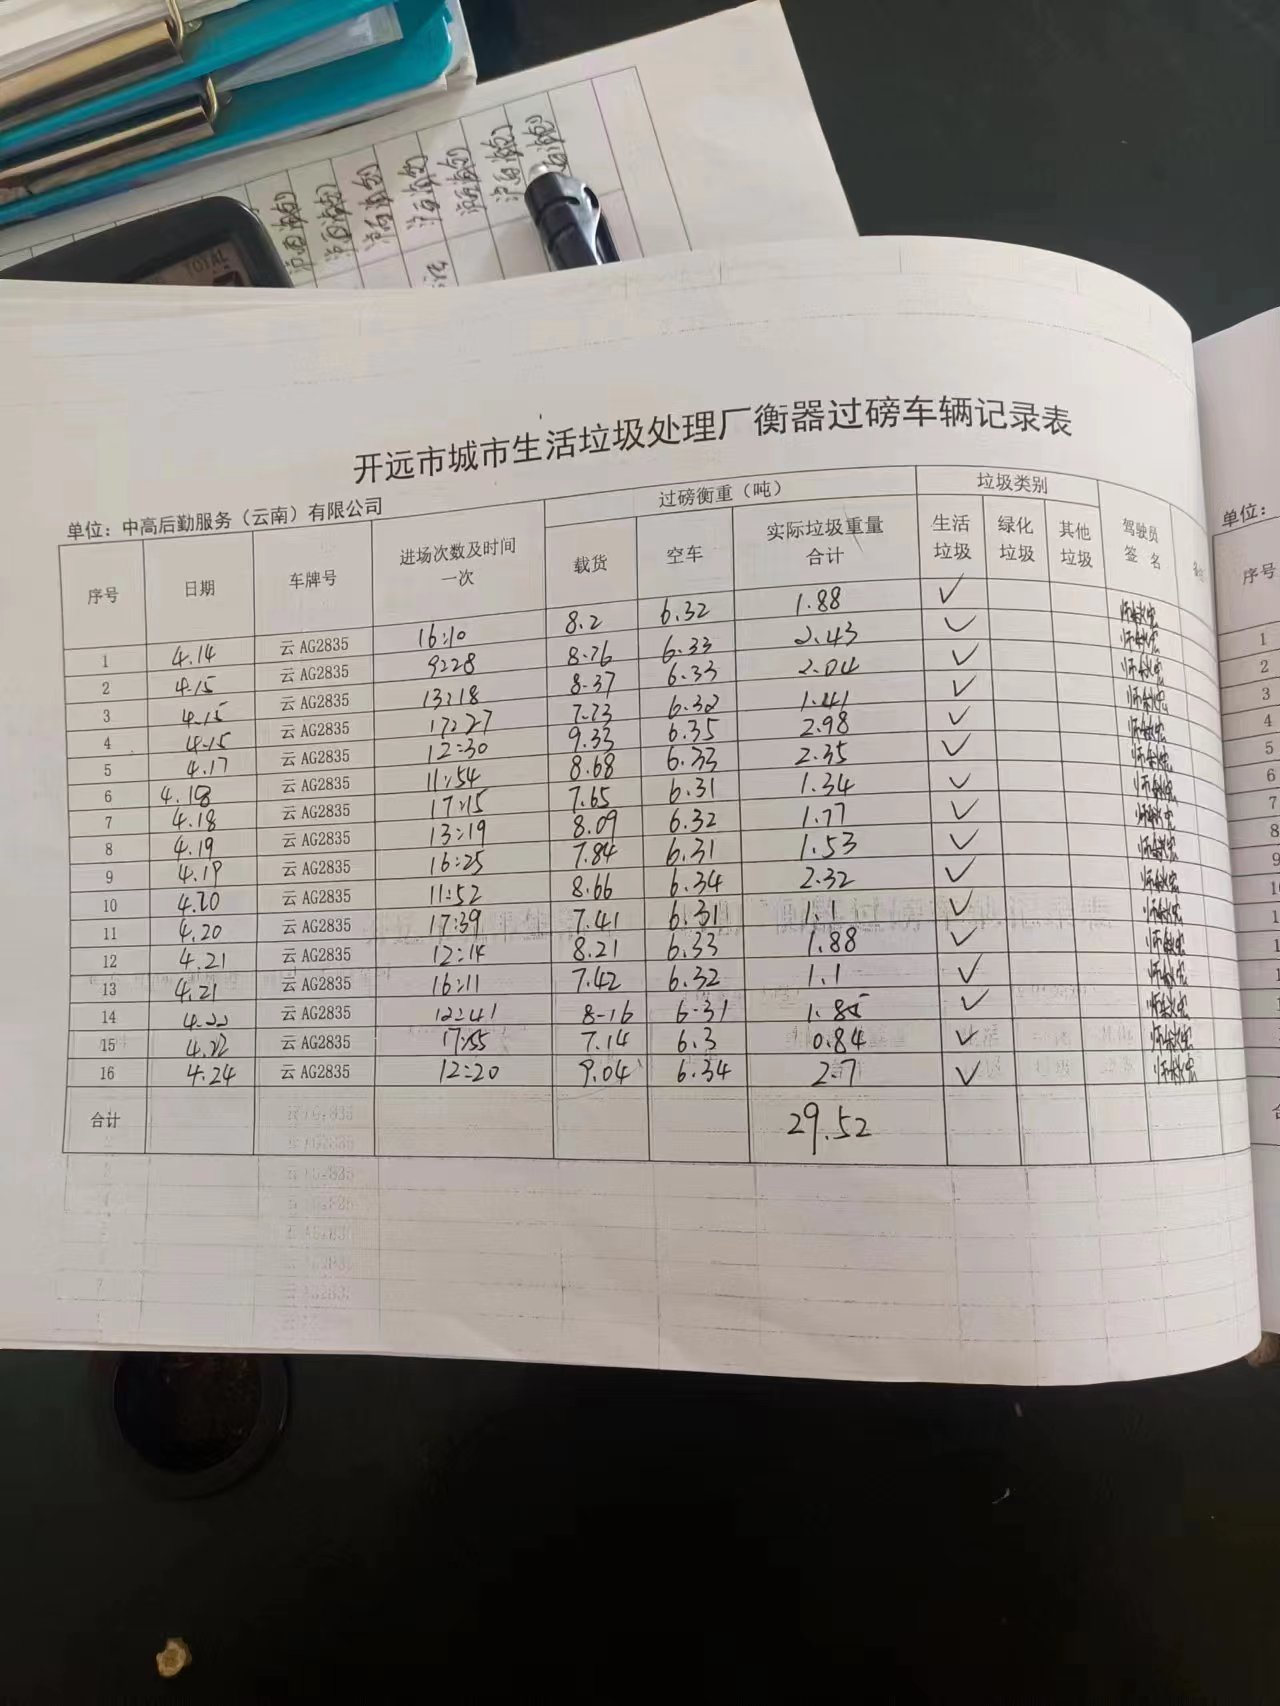 TOTAL
开远市城市生活垃圾处理厂衡器过磅车辆记录表
单位：中高后勤服务（云南）有限公司
序号 日期 车牌号 进场次数及时间 一次 过磅衡重（吨） 载货 空车 实际垃圾重量 合计 垃圾类别 生活垃圾 绿化垃圾 其他垃圾 驾驶员签名
1 4.14 云AG2835 16:10 8.2 6.32 1.88 ✓
2 4.15 云AG2835 9:28 8.76 6.33 2.43 ✓
3 4.15 云AG2835 13:18 8.37 6.33 2.04 ✓
4 4.15 云AG2835 17:27 7.73 6.32 1.41 ✓
5 4.17 云AG2835 12:30 9.33 6.35 2.98 ✓
6 4.18 云AG2835 11:54 8.68 6.33 2.35 ✓
7 4.18 云AG2835 17:15 7.65 6.31 1.34 ✓
8 4.19 云AG2835 13:19 8.09 6.32 1.77 ✓
9 4.19 云AG2835 16:25 7.84 6.31 1.53 ✓
10 4.20 云AG2835 11:52 8.66 6.34 2.32 ✓
11 4.20 云AG2835 17:39 7.41 6.31 1.1 ✓
12 4.21 云AG2835 12:14 8.21 6.33 1.88 ✓
13 4.21 云AG2835 16:11 7.42 6.32 1.1 ✓
14 4.22 云AG2835 12:41 8.16 6.31 1.85 ✓
15 4.22 云AG2835 17:55 7.14 6.3 0.84 ✓
16 4.24 云AG2835 12:20 9.04 6.34 2.7 ✓
合计 29.52
单位：
序号
1
2
3
4
5
6
7
8
9